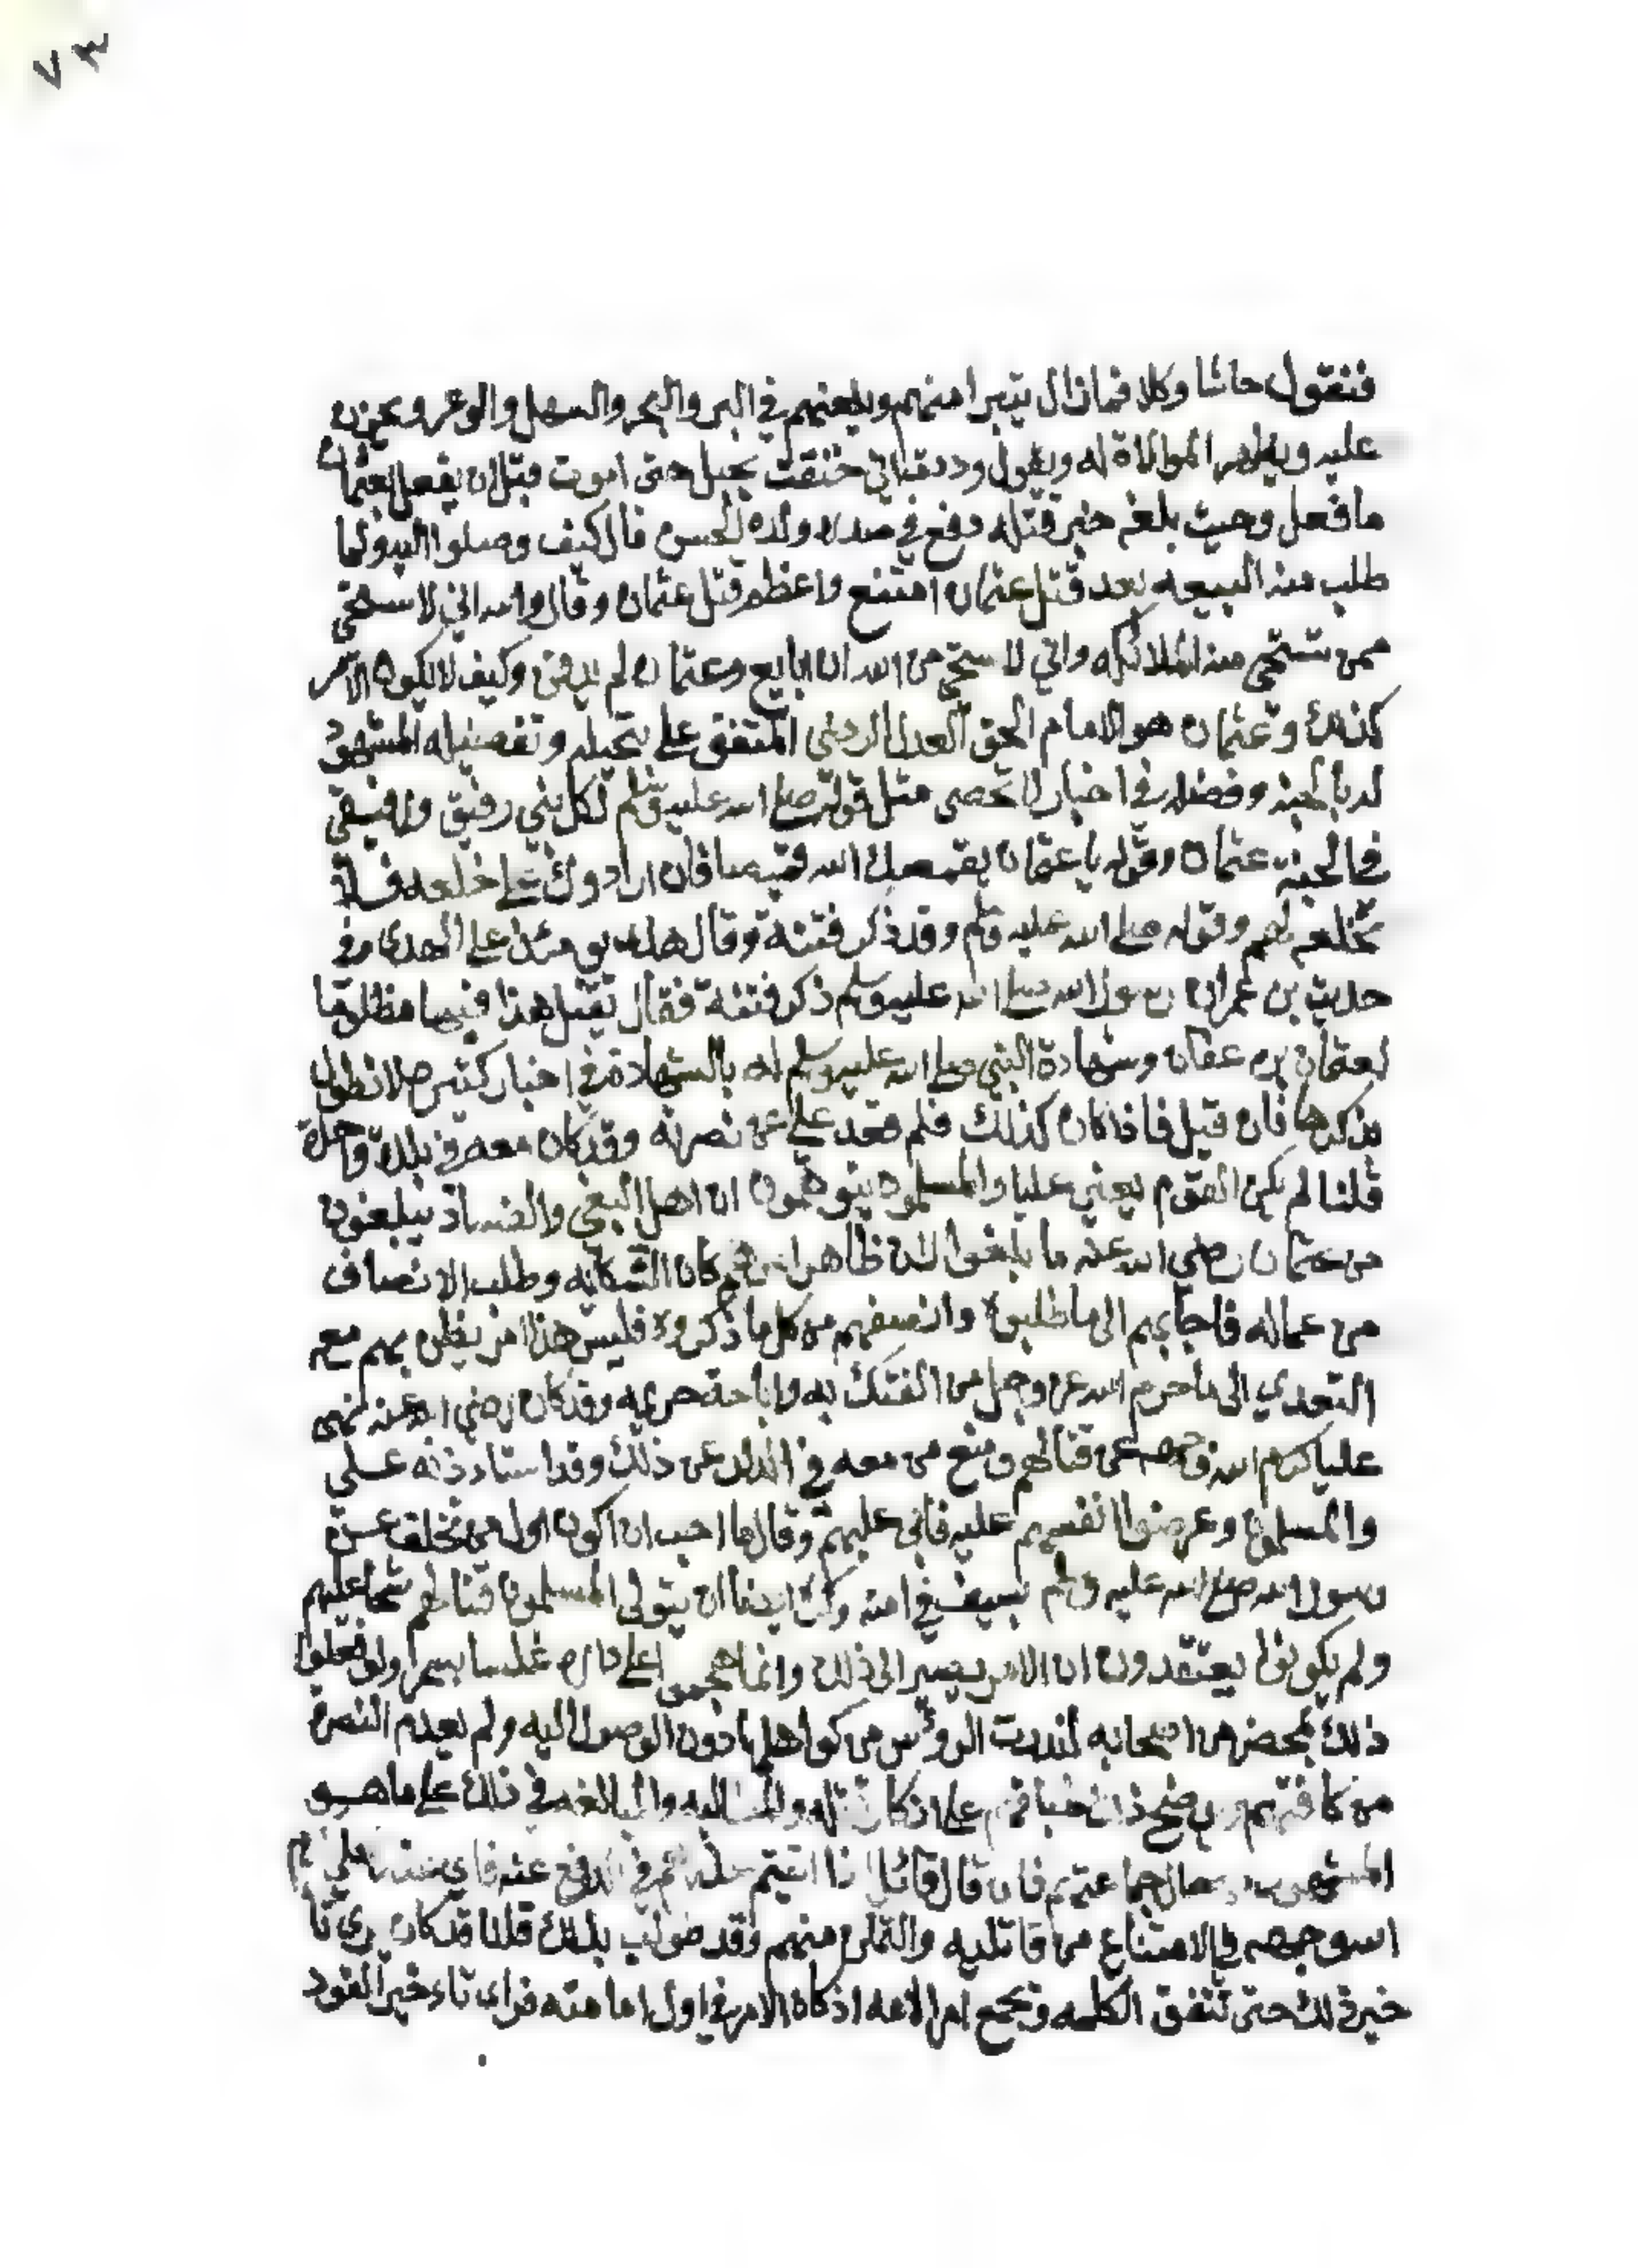 ٧٣
فنقول حاشا وكلا فمازال يتبرا منهم ويلعنهم في البر والبحر والسهل والوعر ويحزن
عليه ويظهر الموالاة له ويقول وددت اني خنقت بحبل حتى اموت قبل ان يفعل بعثمان
ما فعل وحيث بلغه خبر قتله دفع في صدر ولده الحسن قال كيف وصلوا اليه ولما
طلب منه البيعه بعد قتل عثمان امتنع واعظم قتل عثمان وقال والله اني لاستحي
ممن تستحي منه الملائكه واني لاستحي من الله ان ابايع وعثمان لم يدفن وكيف لا يكون الامر
كذلك وعثمان هو الامام الحق العدل الرضي المتفق على تبجيله وتفضيله المشهود
له بالجنه وفضله في اخبار لا تحصى مثل قوله صلى الله عليه وسلم لكل نبي رفيق ورفيقي
في الجنه عثمان وقوله يا عثمان يقمصك الله قميصا فان ارادوك على خلعه فلا
تخلعه لهم وقوله صلى الله عليه وسلم وقد ذكر فتنة وقال هذا يومئذ على الهدى وفي
حديث بن عمر ان رسول الله صلى الله عليه وسلم ذكر فتنة فقال يقتل هذا فيها مظلوما
لعثمان بن عفان وشهادة النبي صلى الله عليه وسلم له بالشهادة في اخبار كثيرة لا نطول
بذكرها فان قيل فاذا كان كذلك فلم قعد علي عن نصرته وقد كان معه في بلدة واحدة
قلنا لم يكن القوم يعني عليا والمسلمون يتوهمون ان اهل البغي والفساد يبلغون
من عثمان رضي الله عنه ما بلغوا لان ظاهر امرهم كان الشكايه وطلب الانصاف
من عماله فاجابهم الى ما طلبوا وانصفهم من كل ما ذكروه فليس هذا امر يظن بهم معه
التعدي الى ما حرم الله عز وجل من الفتك به واباحة حريمه وقد كان رضي الله عنه نهى
عليا كرم الله وجهه عن قتالهم ومنع من معه في الدار عن ذلك وقد استاذنه علي
والمسلمون وعرضوا انفسهم عليه فابى عليهم وقال ما احب ان اكون اول من تخلف عن
رسول الله صلى الله عليه وسلم بسيف في امته وكره ايضا ان يتولى المسلمون قتالهم شحا عليهم
ولم يكونوا يعتقدون ان الامر يصير الى ذلك وانما هجموا على داره غلسا بسحر ولو فعلوا
ذلك بمحضر من اصحابه لندرت الروئس من كواهلها دون الوصول اليه ولم يعدم النصرة
من كافتهم على انكار قتله والمبالغه في ذلك على ما هو
المشهور جماعتهم فان قال قائل اذا في الدفع عنه فاي
الله وجهه في الامتناع من قاتليه والتمكن منهم وقد طولب بذلك قلنا قد كان يرى تا
خير ذلك حتى تتفق الكلمه وتجمع امر الامه اذ كان الامر في اول امامته فراى تاءخير القود